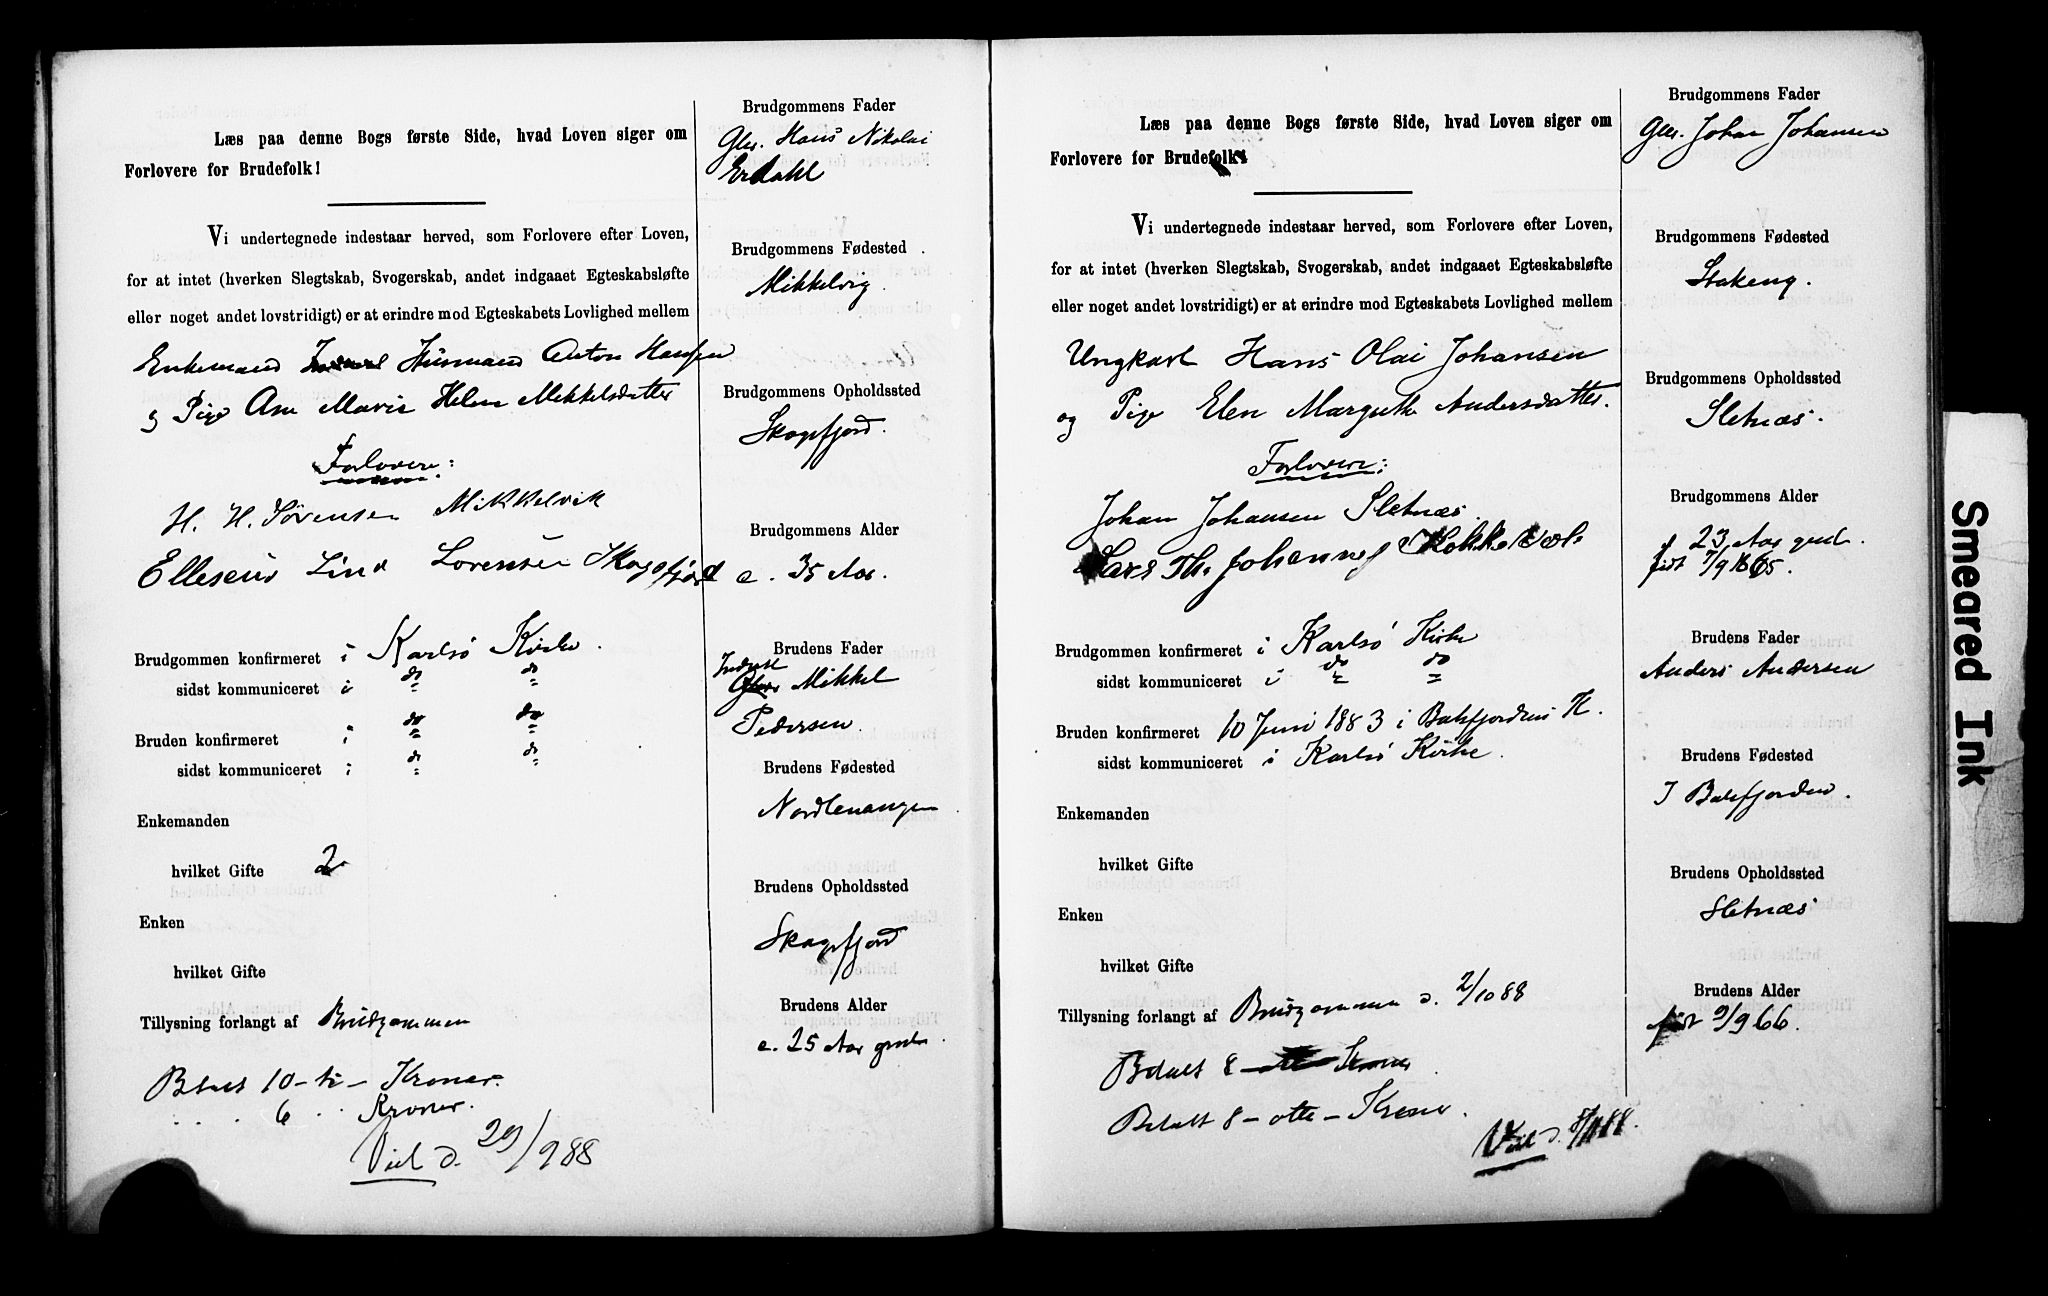 Læs paa denne Bogs første Side, hvad Loven siger om
Forlovere for Brudefolk!
Vi undertegnede indestaar herved, som Forlovere efter Loven,
for at intet (hverken Slegtskab, Svogerskab, andet indgaaet Egteskabsløfte
eller noget andet lovstridigt) er at erindre mod Egteskabets Lovlighed mellem
Enkemand Husmand Anton Hansen
og Pige Ane Marie Helen Mekkelsdatter
Forlovere:
H. H. Sørensen Mikkelvik
Elleseus Lind Lorensen Skogsfjord
Brudgommen konfirmeret i Karlsö Kirke.
sidst kommuniceret i do do
Bruden konfirmeret i do do
sidst kommuniceret i do do
Enkemanden
hvilket Gifte 2
Enken
hvilket Gifte
Tillysning forlangt af Brudgommen
Betalt 10 - ti - Kroner.
. . . 6 . . Kroner.
Viet d. 29/9 88
Brudgommens Fader
Gbr. Hans Nikolai
Erdahl
Brudgommens Fødested
Mikkelvig.
Brudgommens Opholdssted
Skogsfjord.
Brudgommens Alder
c. 35 Aar.
Brudens Fader
Inderst
Mikkel
Pedersen.
Brudens Fødested
Nordlenangen
Brudens Opholdssted
Skogsfjord
Brudens Alder
c. 25 Aar gml.
Læs paa denne Bogs første Side, hvad Loven siger om
Forlovere for Brudefolk!
Vi undertegnede indestaar herved, som Forlovere efter Loven,
for at intet (hverken Slegtskab, Svogerskab, andet indgaaet Egteskabsløfte
eller noget andet lovstridigt) er at erindre mod Egteskabets Lovlighed mellem
Ungkarl Hans Olai Johansen
og Pige Elen Margrethe Andersdatter.
Forlovere:
Johan Johansen Sletnæs.
Lars Th. Johannes
Brudgommen konfirmeret i Karlsö Kirke
sidst kommuniceret i do do
Bruden konfirmeret 10 Juni 1883 i Balsfjordens K.
sidst kommuniceret i Karlsö Kirke.
Enkemanden
hvilket Gifte
Enken
hvilket Gifte
Tillysning forlangt af Brudgommen d. 2/10 88
Betalt 8 - otte Kroner
Betalt 8 - otte - Kroner.
Viet d. 88.
Brudgommens Fader
Gbr. Johan Johansen
Brudgommens Fødested
Stakeng.
Brudgommens Opholdssted
Sletnæs.
Brudgommens Alder
23 Aar gml.
født 7/9 1865.
Brudens Fader
Anders Andersen
Brudens Fødested
I Balsfjorden.
Brudens Opholdssted
Sletnæs
Brudens Alder
født 9/9 66.
Smeared Ink